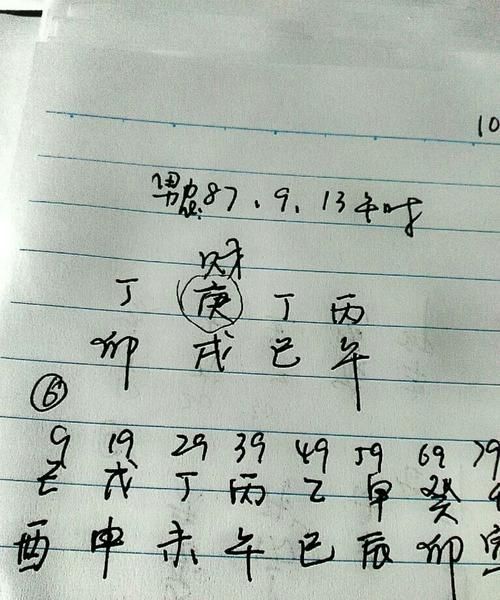 10
男农:87.9.13午时
财
丁 庚 丁 丙
卯 戌 巳 午
⑥
9 19 29 39 49 59 69 79
己 戊 丁 丙 乙 甲 癸
酉 申 未 午 巳 辰 卯 寅